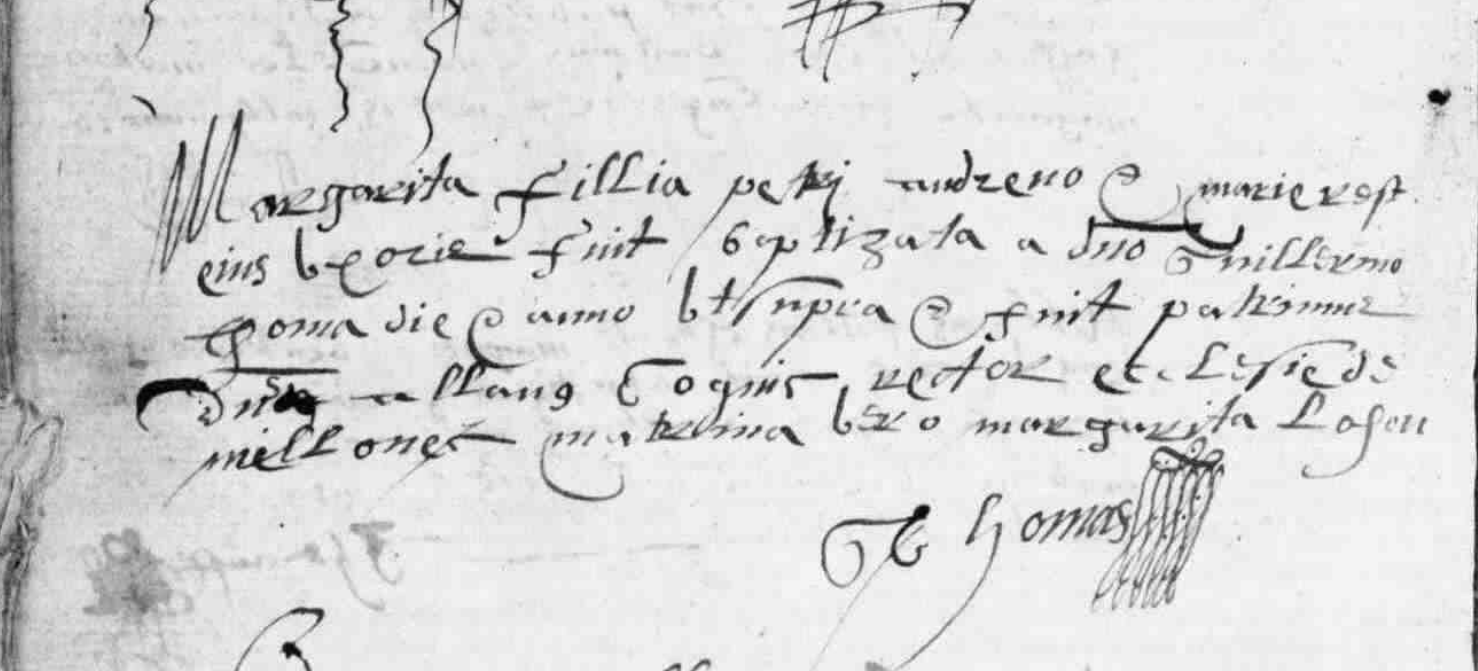 Margarita fillia petri andreno & marie rest
eius vxorie fuit baptizata a dno Guillermo
thoma die & anno vt supra & fuit patrinus
dns allanus Cognic rector ecclesie de
mellonec matrina vero margarita Losou
G Thomas